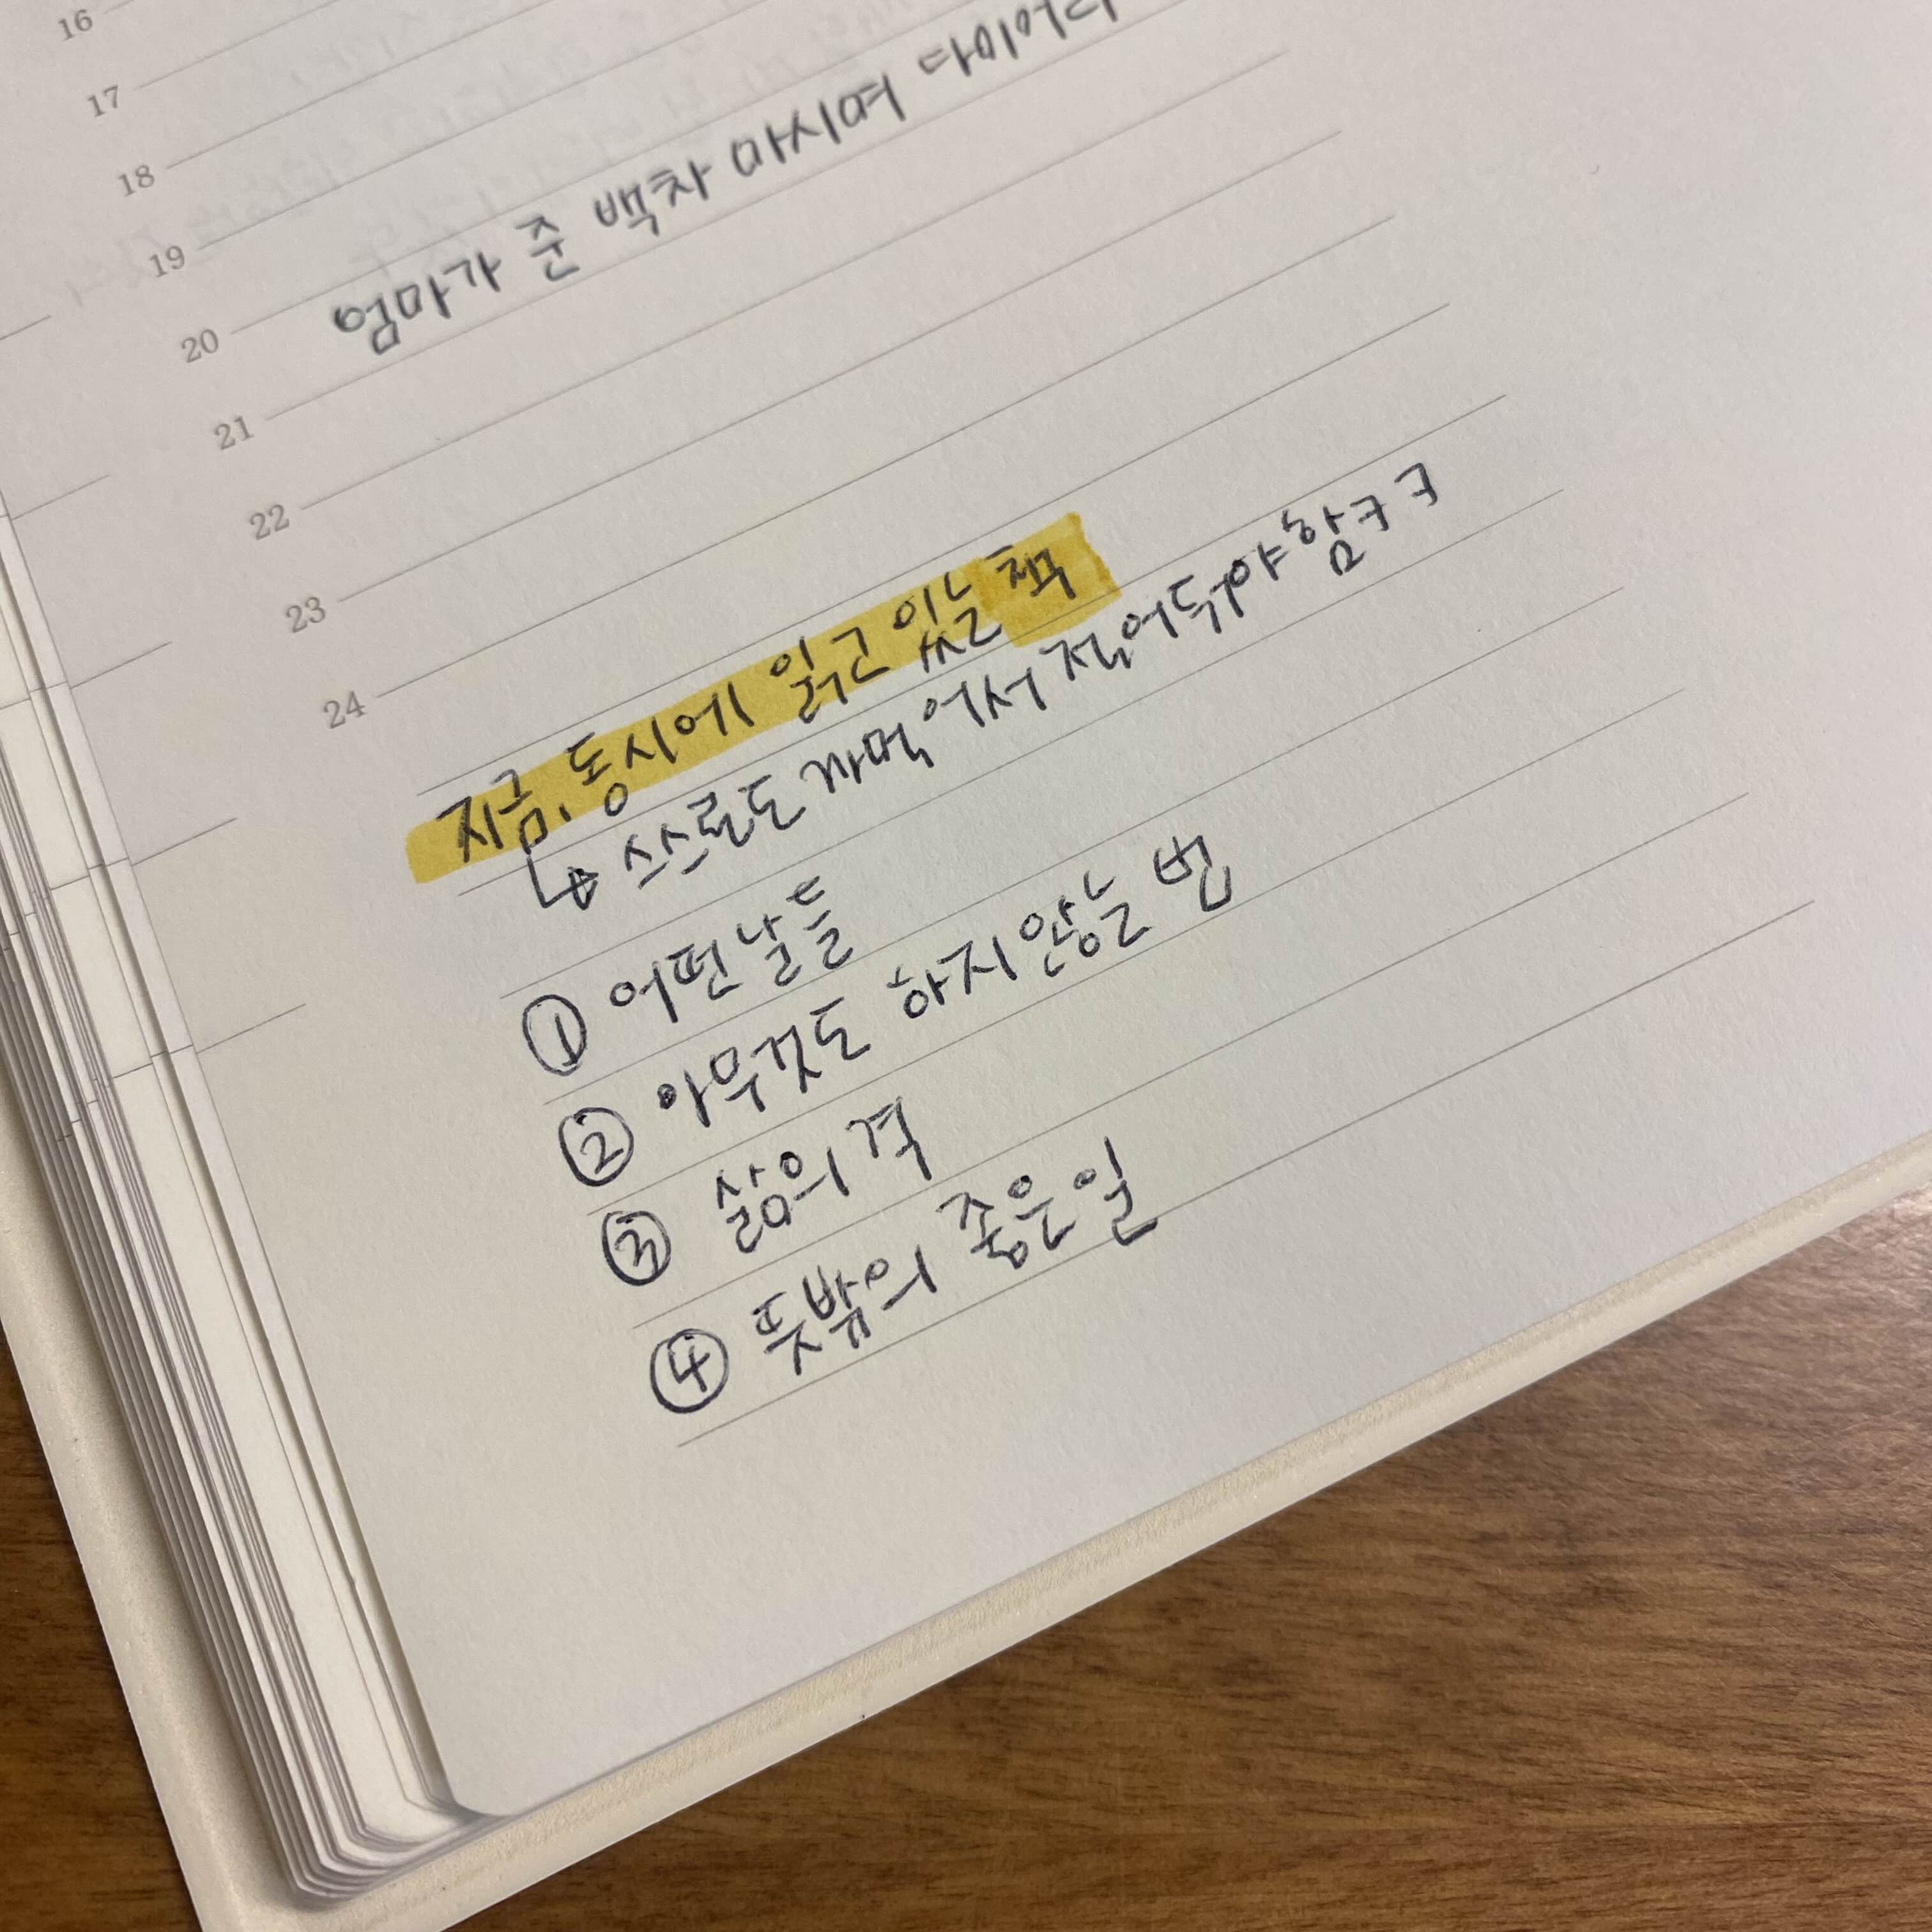 16
17
18
19
20 엄마가 준 백차 마시며 다이어리
21
22
23
24
지금, 동시에 읽고 있는 책
↳ 스스로도 까먹어서 적어둬야 함ㅋㅋ
① 어떤 날들
② 아무것도 하지 않는 법
③ 삶의 격
④ 뜻밖의 좋은 일